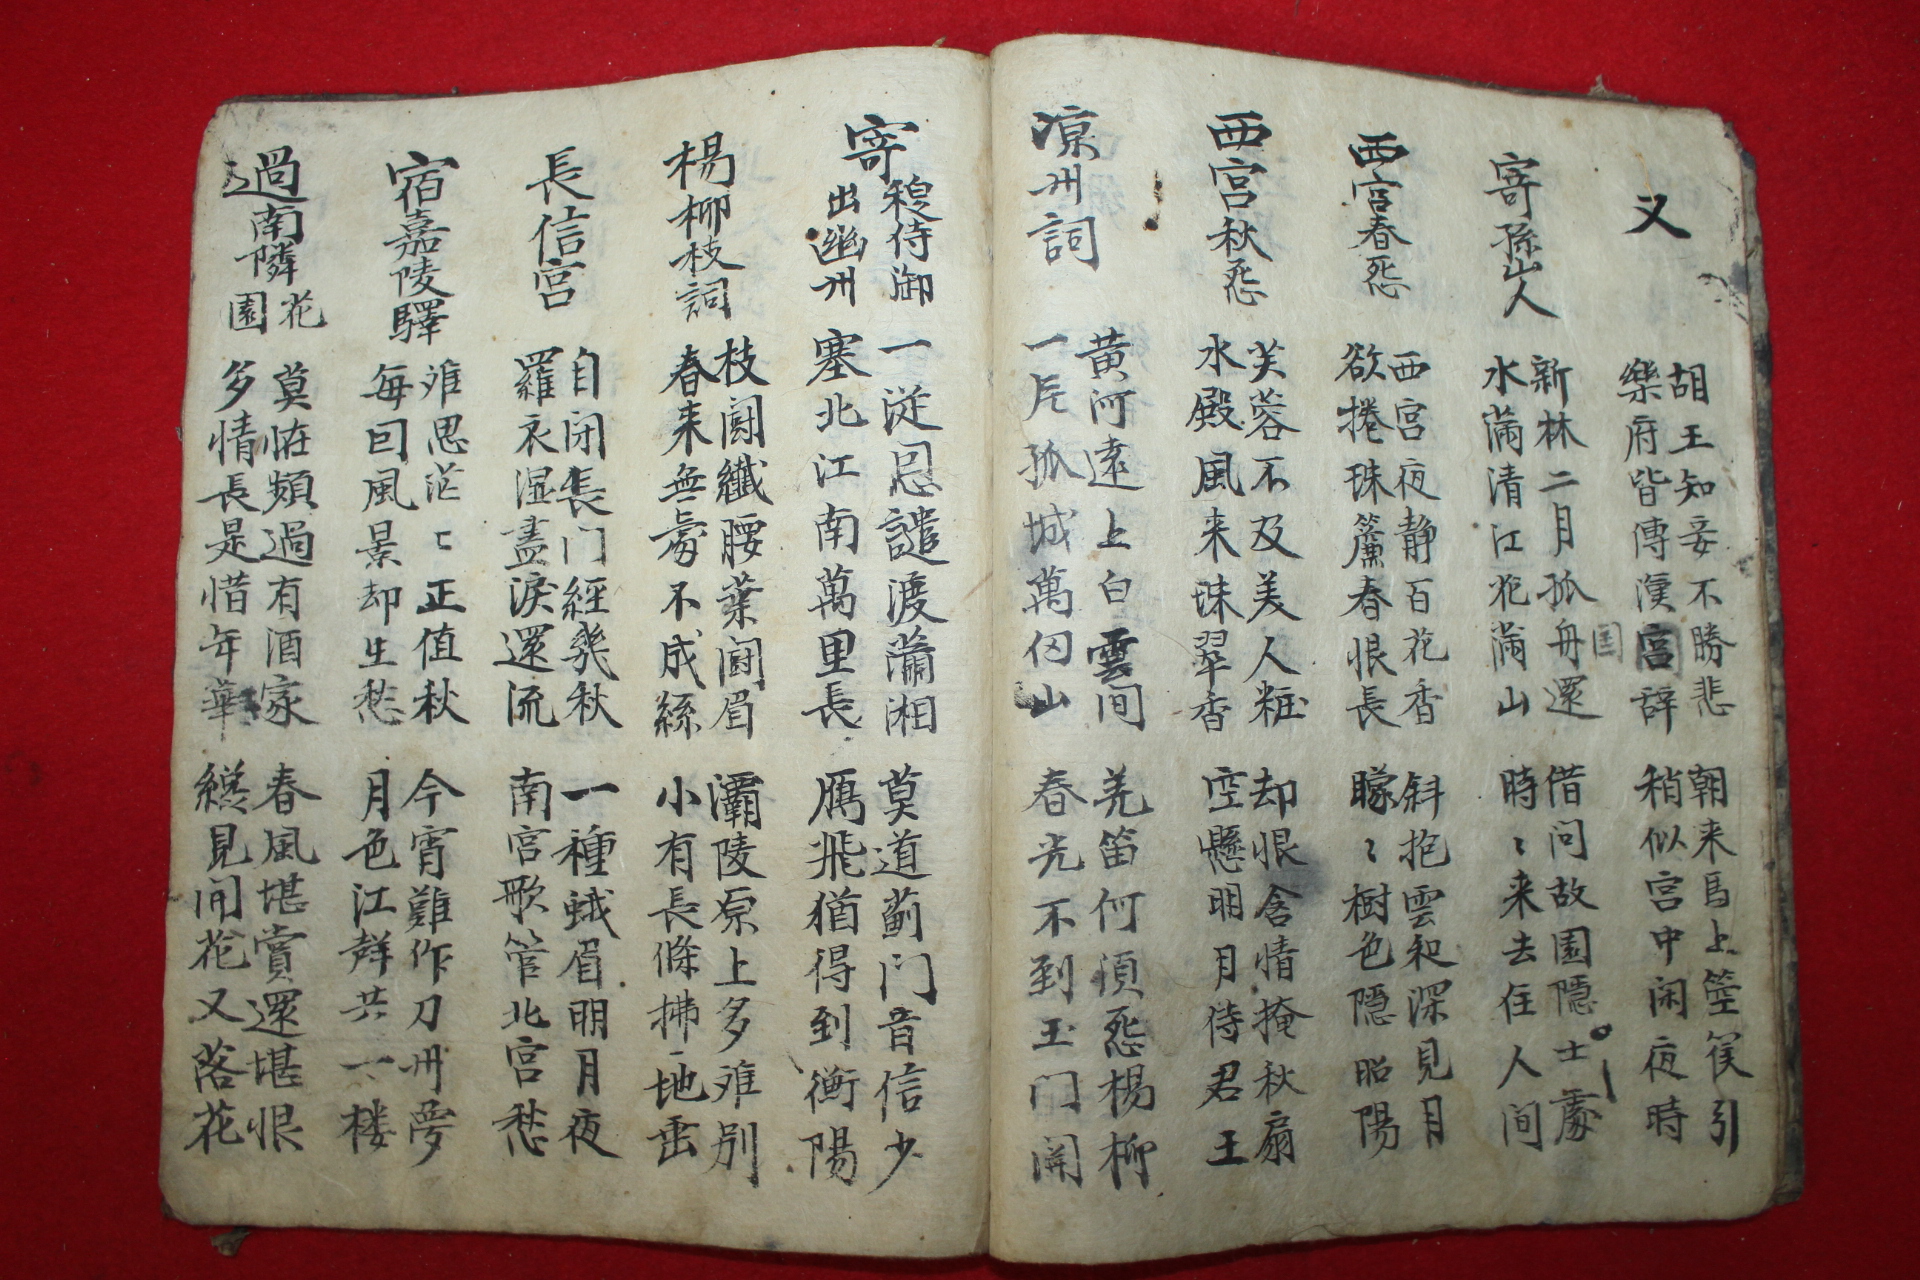 又
胡王知妾不勝悲
樂府皆傳漢宮辞
国
朝来馬上箜篌引
稍似宮中闲夜時
寄孫山人
新林二月孤舟還
水滿清江花滿山
借问故園隱士處
時〻来去住人间
西宮春怨
西宮夜静百花香
欲捲珠簾春恨長
斜抱雲和深見月
朦〻樹色隱昭陽
西宮秋怨
芙蓉不及美人粧
水殿風来珠翠香
却恨含情掩秋扇
空懸明月待君王
凉州詞
黃河遠上白雲间
一片孤城萬仞山
羌笛何須怨楊柳
春光不到玉门開
寄穆侍御
出幽州
一從恩譴渡瀟湘
塞北江南萬里長
莫道薊门音信少
鴈飛猶得到衡陽
楊柳枝詞
枝鬪纖腰葉鬪眉
春来無處不成絲
灞陵原上多难別
小有長條拂地垂
長信宮
自闭長门經幾秋
羅衣湿盡淚還流
一種蛾眉明月夜
南宮歌管北宮愁
宿嘉陵驛
难思茫〻正值秋
每回風景却生愁
今宵難作刀州夢
月色江聲共一楼
過南隣花園
莫恠頻過有酒家
多情長是惜年華
春風堪賞還堪恨
纔見開花又落花